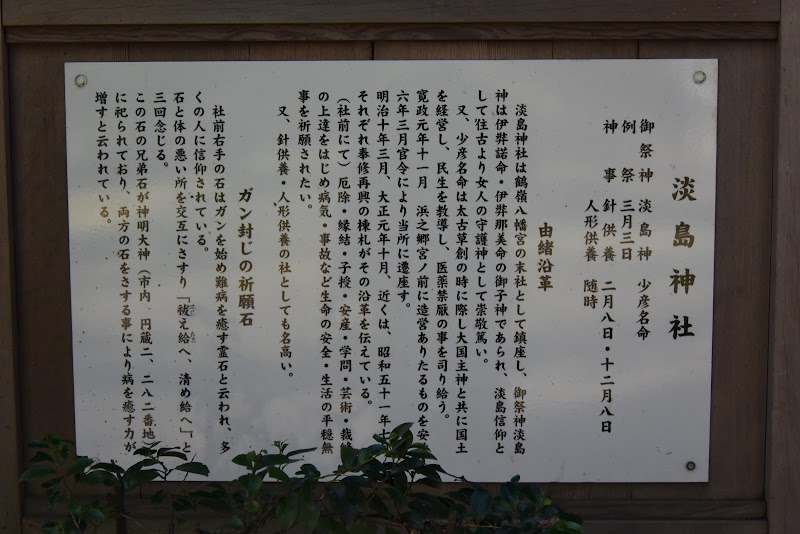 淡島神社
御祭神 淡島神 少彦名命
例祭 三月三日
神事 針供養 二月八日・十二月八日
人形供養 随時
由緒沿革
淡島神社は鶴嶺八幡宮の末社として鎮座し、御祭神淡島
神は伊弉諾命・伊弉那美命の御子神であられ、淡島信仰と
して往古より女人の守護神として崇敬篤い。
又、少彦名命は太古草創の時に際し大国主神と共に国土
を経営し、民生を教導し、医薬禁厭の事を司り給う。
寛政元年十一月 浜之郷宮ノ前に造営ありたるものを安
六年三月官令により当所に遷座す。
明治十年三月、大正元年十月、近くは、昭和五十一年十
それぞれ奉修再興の棟札がその沿革を伝えている。
（社前にて）厄除・縁結・子授・安産・学問・芸術・裁縫
の上達をはじめ病気・事故など生命の安全・生活の平穏無
事を祈願されたい。
又、針供養・人形供養の社としても名高い。
ガン封じの祈願石
社前右手の石はガンを始め難病を癒す霊石と云われ、多
くの人に信仰されている。
石と体の悪い所を交互にさすり「祓え給へ、清め給へ」と
三回念じる。
この石の兄弟石が神明大神（市内 円蔵二、二八二番地）
に祀られており、両方の石をさする事により病を癒す力が
増すと云われている。